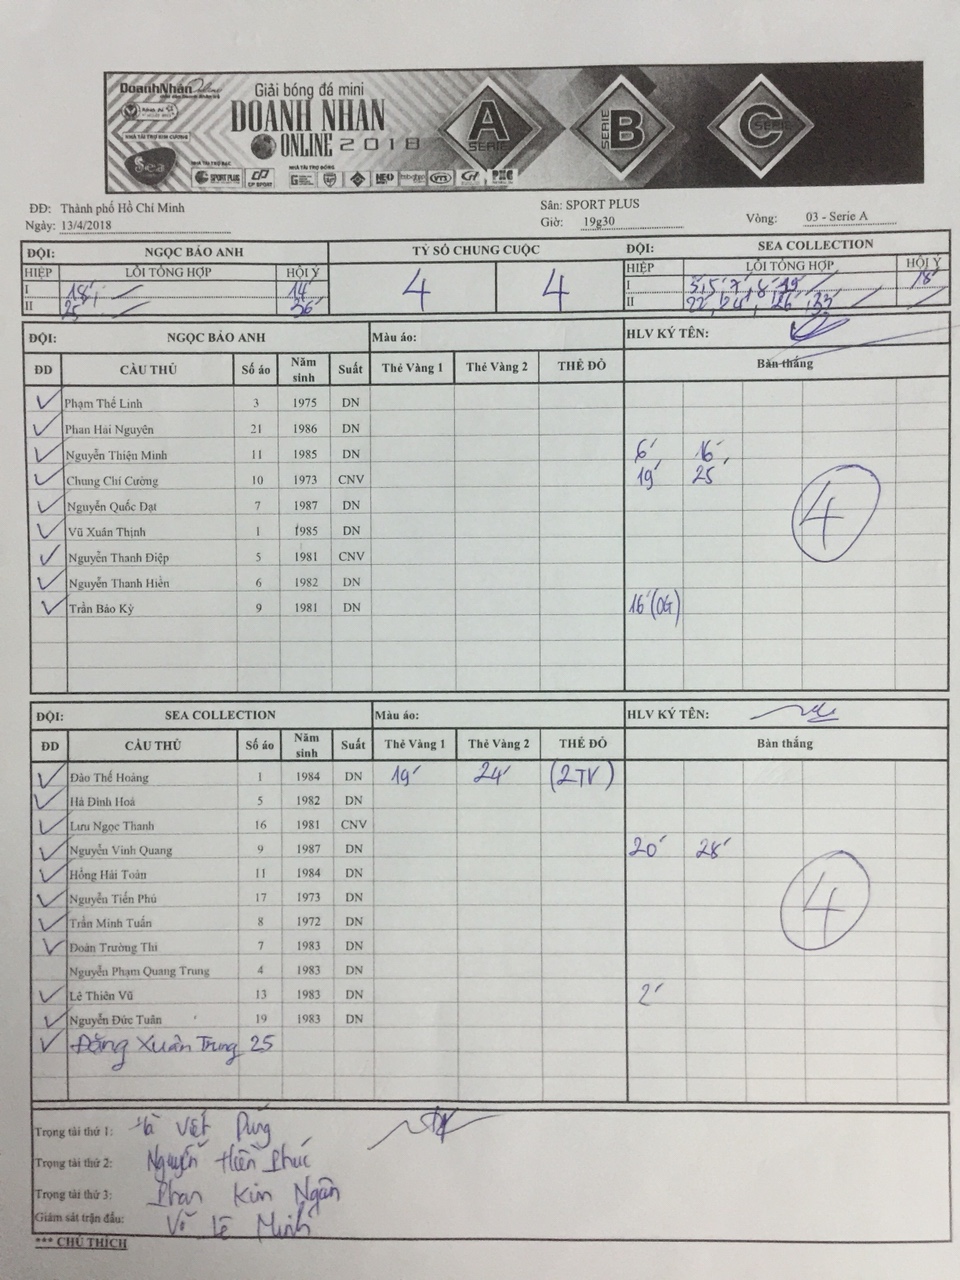 DoanhNhanOnline
Giải bóng đá mini
DOANH NHAN
ONLINE 2018
NHÀ TÀI TRỢ KIM CƯƠNG
Sea
NHÀ TÀI TRỢ BẠC
NHÀ TÀI TRỢ ĐỒNG
SPORT PLUS
CP SPORT
A SERIE
SERIE B
C SERIE
ĐĐ: Thành phố Hồ Chí Minh Sân: SPORT PLUS
Ngày: 13/4/2018 Giờ: 19g30 Vòng: 03 - Serie A
ĐỘI: NGỌC BẢO ANH TỶ SỐ CHUNG CUỘC ĐỘI: SEA COLLECTION
HIỆP LỖI TỔNG HỢP HỘI Ý 4 4 HIỆP LỖI TỔNG HỢP HỘI Ý
I 18', 14' I 3', 5' 7', 8' 19' 18'
II 25' 36' II 22', 24', 26', 33'
ĐỘI: NGỌC BẢO ANH Màu áo: HLV KÝ TÊN:
ĐD CẦU THỦ Số áo Năm sinh Suất Thẻ Vàng 1 Thẻ Vàng 2 THẺ ĐỎ Bàn thắng
Phạm Thế Linh 3 1975 DN
Phan Hải Nguyên 21 1986 DN
Nguyễn Thiện Minh 11 1985 DN 6', 16',
Chung Chí Cường 10 1973 CNV 19' 25
Nguyễn Quốc Đạt 7 1987 DN 4
Vũ Xuân Thịnh 1 1985 DN
Nguyễn Thanh Điệp 5 1981 CNV
Nguyễn Thanh Hiền 6 1982 DN
Trần Bảo Kỳ 9 1981 DN 16' (OG)
ĐỘI: SEA COLLECTION Màu áo: HLV KÝ TÊN:
ĐD CẦU THỦ Số áo Năm sinh Suất Thẻ Vàng 1 Thẻ Vàng 2 THẺ ĐỎ Bàn thắng
Đào Thế Hoàng 1 1984 DN 19' 24' (2TV)
Hà Đình Hoá 5 1982 DN
Lưu Ngọc Thanh 16 1981 CNV
Nguyễn Vinh Quang 9 1987 DN 20' 28'
Hồng Hải Toàn 11 1984 DN
Nguyễn Tiến Phú 17 1973 DN 4
Trần Minh Tuấn 8 1972 DN
Đoàn Trường Thi 7 1983 DN
Nguyễn Phạm Quang Trung 4 1983 DN
Lê Thiên Vũ 13 1983 DN 2'
Nguyễn Đức Tuân 19 1983 DN
Đặng Xuân Trung 25
Trọng tài thứ 1: Hà Việt Dũng
Trọng tài thứ 2: Nguyễn Hiền Phúc
Trọng tài thứ 3: Phan Kim Ngân
Giám sát trận đấu: Võ Lê Minh
*** CHÚ THÍCH